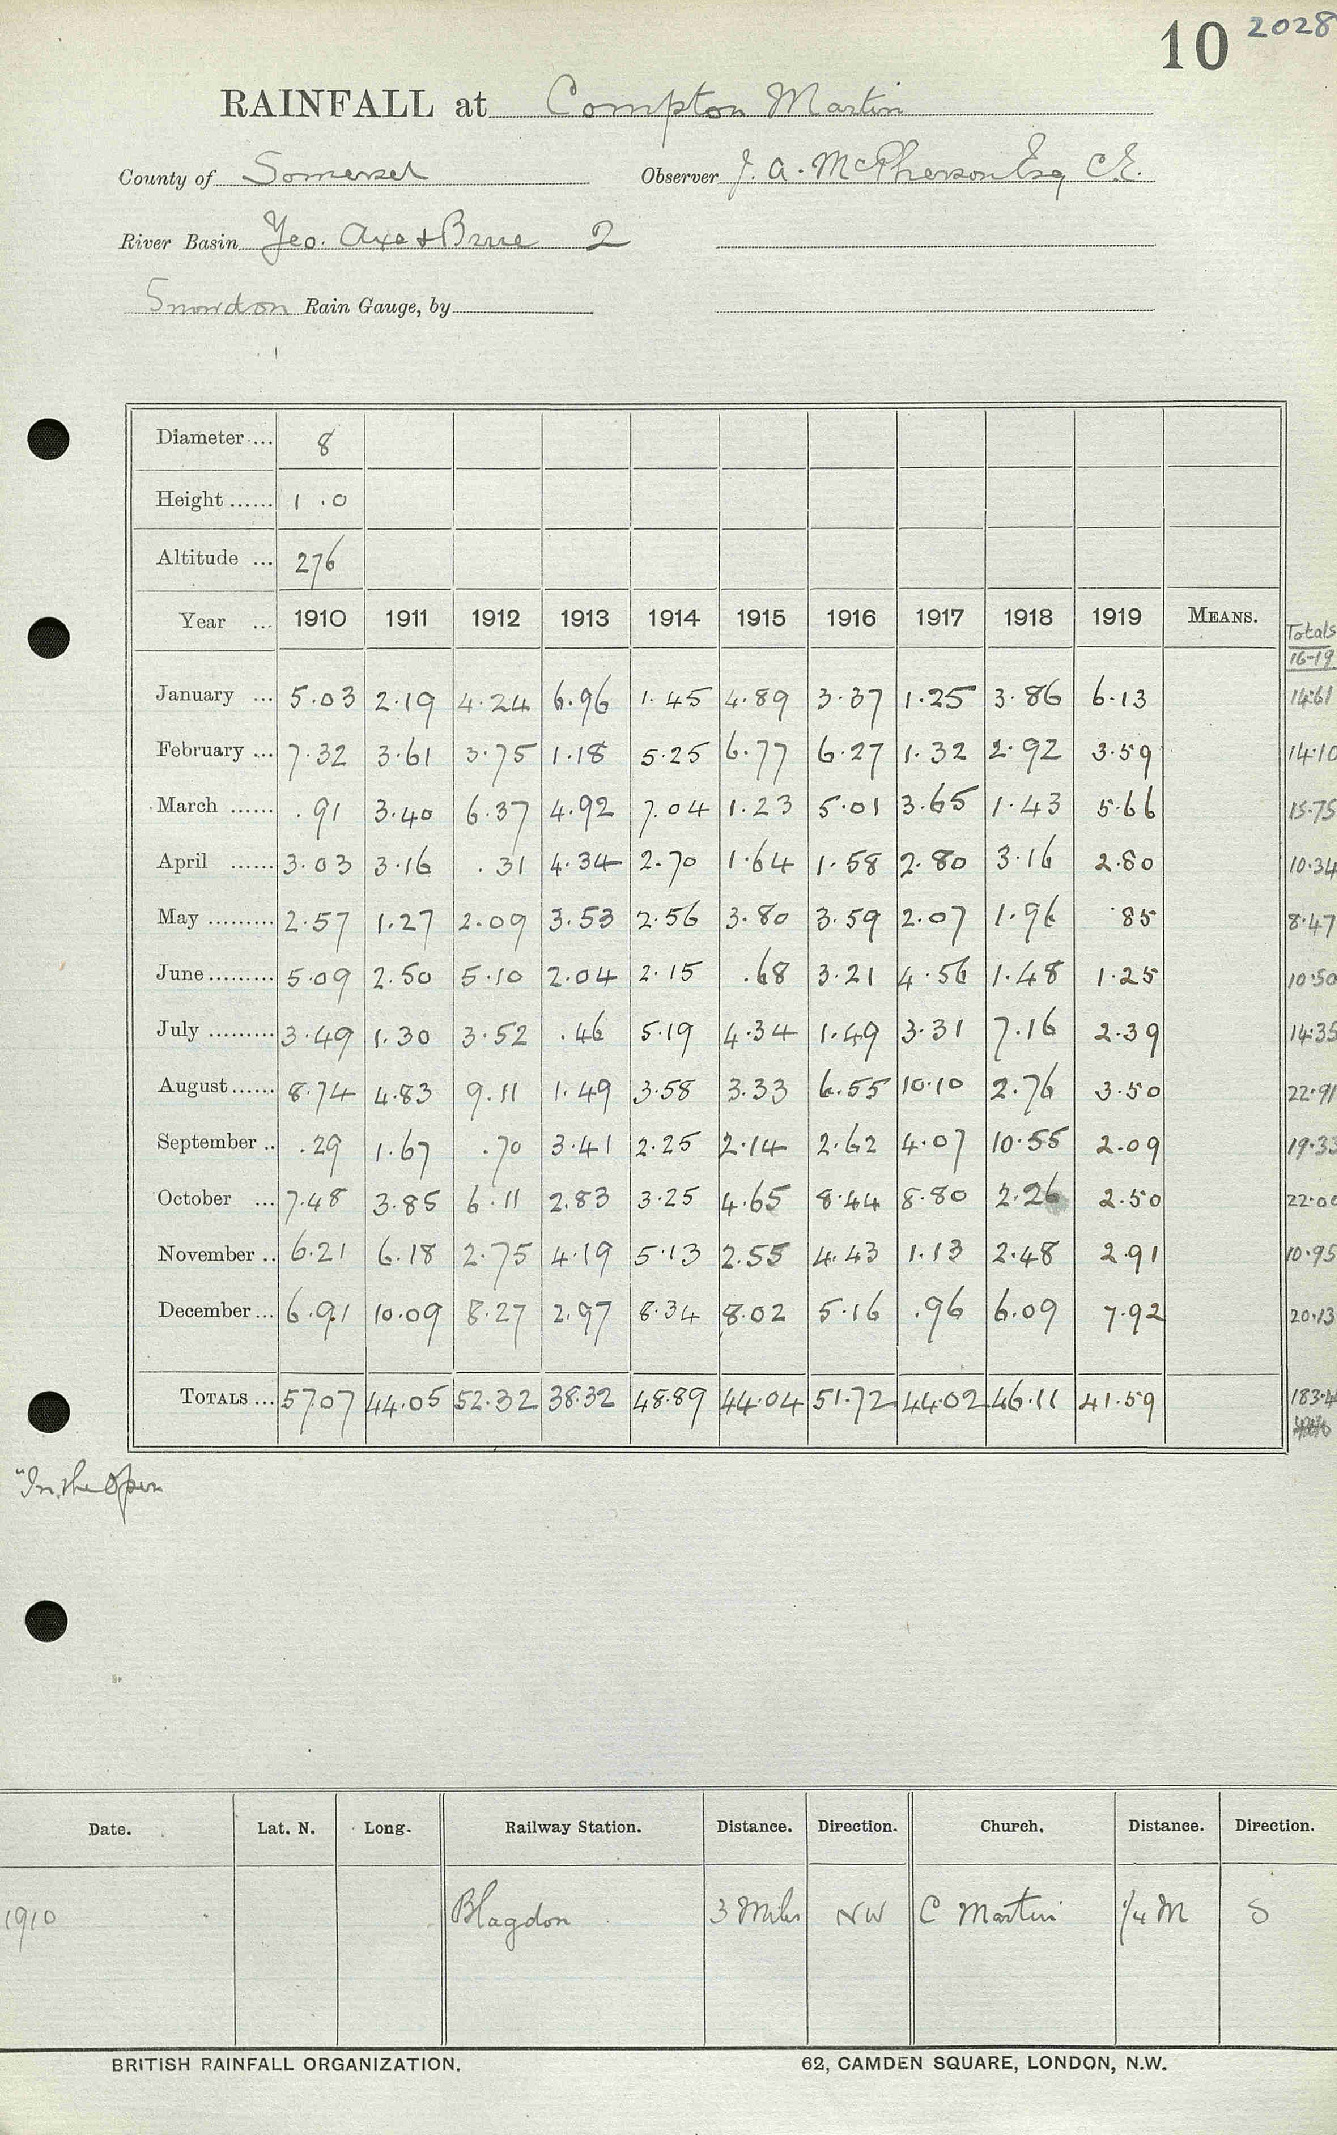 10 2028
RAINFALL at Compton Martin
County of Somerset Observer J. A. McPherson Esq C.E.
River Basin Yeo. Axe & Brue 2
Snowdon Rain Gauge, by
Diameter ... 8
Height ...... 1 .0
Altitude ... 276
Year ... 1910 1911 1912 1913 1914 1915 1916 1917 1918 1919 MEANS. Totals 16-19
January ... 5.03 2.19 4.24 6.96 1.45 4.89 3.37 1.25 3.86 6.13 14.61
February ... 7.32 3.61 3.75 1.18 5.25 6.77 6.27 1.32 2.92 3.59 14.10
March ...... .91 3.40 6.37 4.92 7.04 1.23 5.01 3.65 1.43 5.66 15.75
April ...... 3.03 3.16 .31 4.34 2.70 1.64 1.58 2.80 3.16 2.80 10.34
May ......... 2.57 1.27 2.09 3.53 2.56 3.80 3.59 2.07 1.96 .85 8.47
June ......... 5.09 2.50 5.10 2.04 2.15 .68 3.21 4.56 1.48 1.25 10.50
July ......... 3.49 1.30 3.52 .46 5.19 4.34 1.49 3.31 7.16 2.39 14.35
August ...... 8.74 4.83 9.11 1.49 3.58 3.33 6.55 10.10 2.76 3.50 22.91
September .. .29 1.67 .70 3.41 2.25 2.14 2.62 4.07 10.55 2.09 19.33
October ... 7.48 3.85 6.11 2.83 3.25 4.65 8.44 8.80 2.26 2.50 22.00
November .. 6.21 6.18 2.75 4.19 5.13 2.55 4.43 1.13 2.48 2.91 10.95
December ... 6.91 10.09 8.27 2.97 8.34 8.02 5.16 .96 6.09 7.92 20.13
TOTALS ... 57.07 44.05 52.32 38.32 48.89 44.04 51.72 44.02 46.11 41.59 183.4
"In the Open
Date. Lat. N. Long. Railway Station. Distance. Direction. Church. Distance. Direction.
1910 Blagdon 3 Miles NW C Martin 1/4 M S
BRITISH RAINFALL ORGANIZATION. 62, CAMDEN SQUARE, LONDON, N.W.